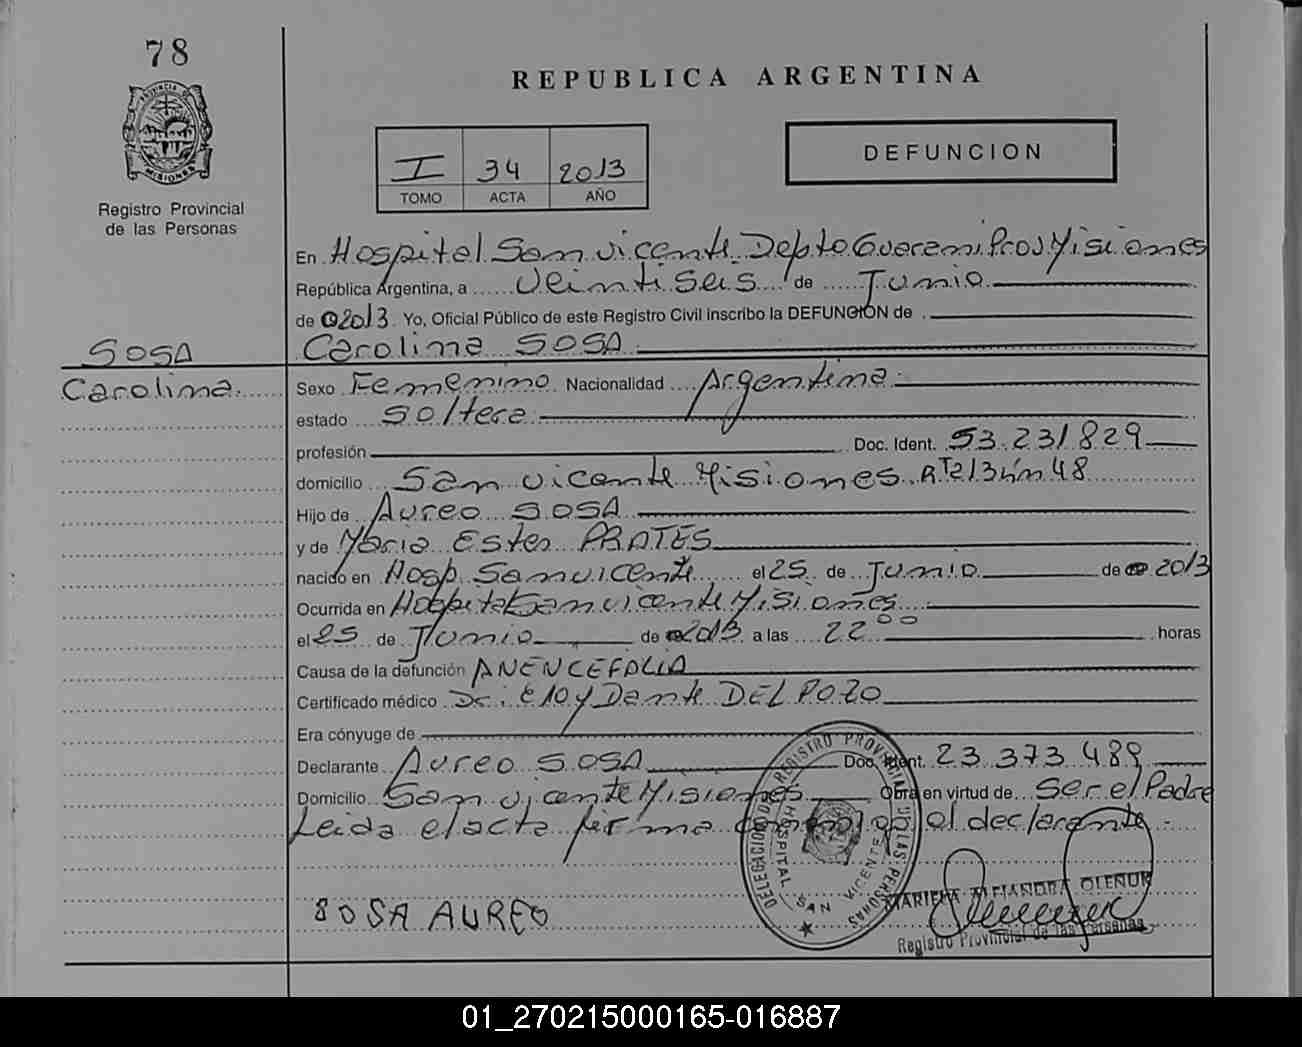 78
REPUBLICA ARGENTINA
PROVINCIA DE
MISIONES
Registro Provincial
de las Personas
I 34 2013
TOMO ACTA AÑO
DEFUNCION
En Hospital San vicente Depto Guarani Prov Misiones
República Argentina, a veintiseis de Junio
de 2013. Yo, Oficial Público de este Registro Civil inscribo la DEFUNCION de
SOSA Carolina SOSA
Carolina. Sexo Femenino Nacionalidad Argentina
estado Soltera
profesión Doc. Ident. 53.231829
domicilio San vicente Misiones. RTa13 km 48
Hijo de Aureo SOSA
y de Maria Ester PRATES
nacido en Hosp. San vicente el 25 de Junio de 2013
Ocurrida en Hospital San vicente Misiones
el 25 de Junio de 2013 a las 22 00 horas
Causa de la defunción ANENCEFALIA
Certificado médico Dr: Eloy Dante DEL POZO
Era cónyuge de
Declarante Aureo SOSA Doc. Ident. 23 373 489
Domicilio San vicente Misiones Obra en virtud de Ser el Padre
Leida el acta firma conmigo el declarante
DELEGACION DE REGISTRO PROVINCIAL DE LAS PERSONAS
HOSPITAL SAN VICENTE
SOSA AUREO
MARIELA ALEJANDRA OLENUK
Registro Provincial de las Personas
01_270215000165-016887